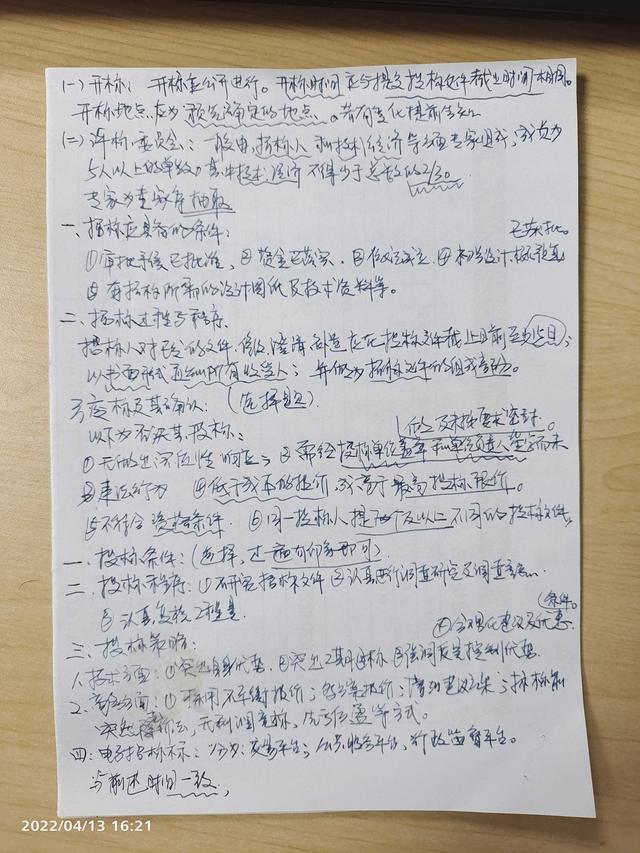 (一)开标: 开标应公开进行。开标时间应与提交投标文件截止时间相同。
开标地点应为预先确定的地点、若有变化提前告知
(二)评标委员会: 一般由招标人和技术经济等方面专家组成,成员为
5人以上的单数。其中技术经济不得少于总数的2/3。
专家为专家库抽取
一、招标应具备的条件: 已获批。
①审批手续已批准、②资金已落实、③依法成立、④初步设计概算
⑤有招标所需的设计图纸及技术资料等。
二、招标过程与程序
招标人对已发的文件修改、澄清、应在投标文件截止日前至少15日;
以书面形式通知所有收受人; 并作为招标文件的组成部分。
3.废标及其确认: (选择题)
以下为否决其投标: 未按要求密封。
①无作出实质性响应; ②需经投标单位盖章和单位负责人签字而未
③违法行为 ④低于成本的报价或高于最高投标限价。
⑤不符合资格条件 ⑥同一投标人提交两个及以上不同的投标文件
一、投标条件: (选择,有印象即可)
二、投标程序: ①研究招标文件 ②认真进行调查研究及调查
③认真复核工程量
④合理化建议及优惠条件。
三、投标策略:
1.技术方面: ①突出自身优势、②突出工期目标、③强调质量控制优势.
2.商务方面: ①采用不平衡报价; 多方案报价; 增加建议方案;
突然降价法, 无利润竞标, 先亏后盈等方式。
四: 电子招标投标: 分为: 交易平台; 公共服务平台, 行政监督平台。
与前述时间一致,
2022/04/13 16:21